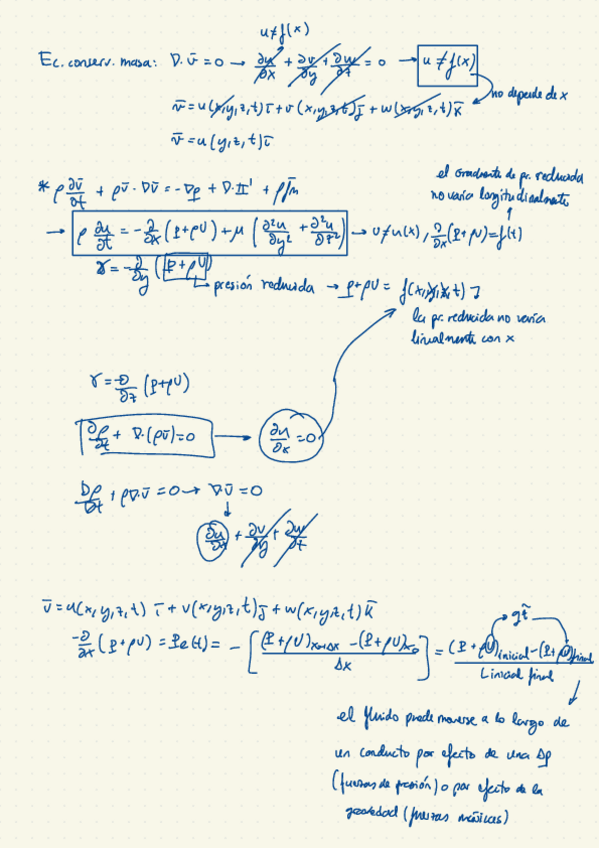 u≠f(x)
Ec. conserv. masa: ∇·v̄ = 0 → ∂u/∂x + ∂v/∂y + ∂w/∂z = 0 → u ≠ f(x)
no depende de x
v̄ = u(x,y,z,t)ī + v(x,y,z,t)j̄ + w(x,y,z,t)k̄
v̄ = u(y,z,t)ī
el gradiente de pr. reducida
no varía longitudinalmente
* ρ ∂v̄/∂t + ρv̄·∇v̄ = -∇p + ∇·τ̄' + ρf̄m
→ ρ ∂u/∂t = -∂/∂x (p+ρU) + μ (∂²u/∂y² + ∂²u/∂z²) → u≠u(x), ∂/∂x (p+ρU) = f(t)
γ = -∂/∂y (p+ρU)
presión reducida → p+ρU = f(x,y,z,t)
la pr. reducida no varía
linealmente con x
γ = -∂/∂z (p+ρU)
∂ρ/∂t + ∇·(ρv̄) = 0 → ∂u/∂x = 0
Dρ/Dt + ρ∇·v̄ = 0 → ∇·v̄ = 0
∂u/∂x + ∂v/∂y + ∂w/∂z
v̄ = u(x,y,z,t) ī + v(x,y,z,t)j̄ + w(x,y,z,t)k̄
-∂/∂x (p+ρU) = Pe(t) = -[((p+ρU)x0+Δx - (p+ρU)x0)/Δx] = ((p+ρU)inicial - (p+ρU)final)/Linicial final
el fluido puede moverse a lo largo de
un conducto por efecto de una Δp
(fuerzas de presión) o por efecto de la
gravedad (fuerzas másicas)